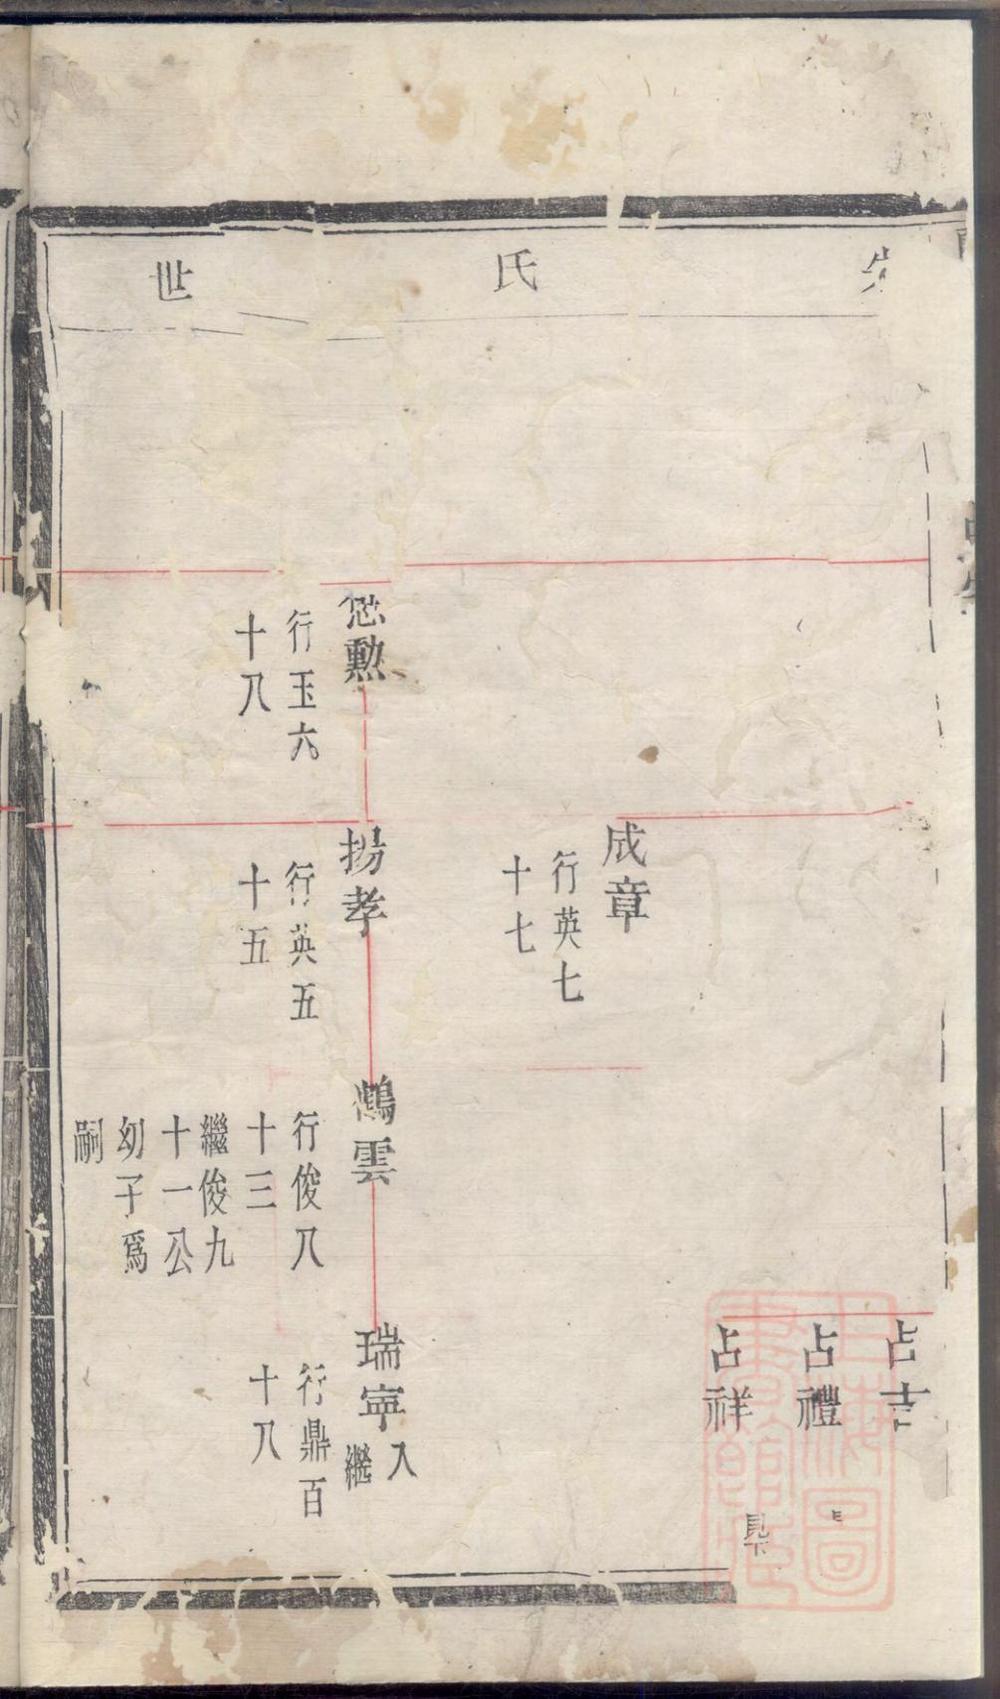 氏
世
成章
行英七
十七
占吉
占禮
占祥
勲
行玉六
十八
揚孝
行英五
十五
鶴雲
行俊八
十三
繼俊九
十一公
幼子爲
嗣
瑞寧
入
繼
行鼎百
十八
上海圖
書館藏